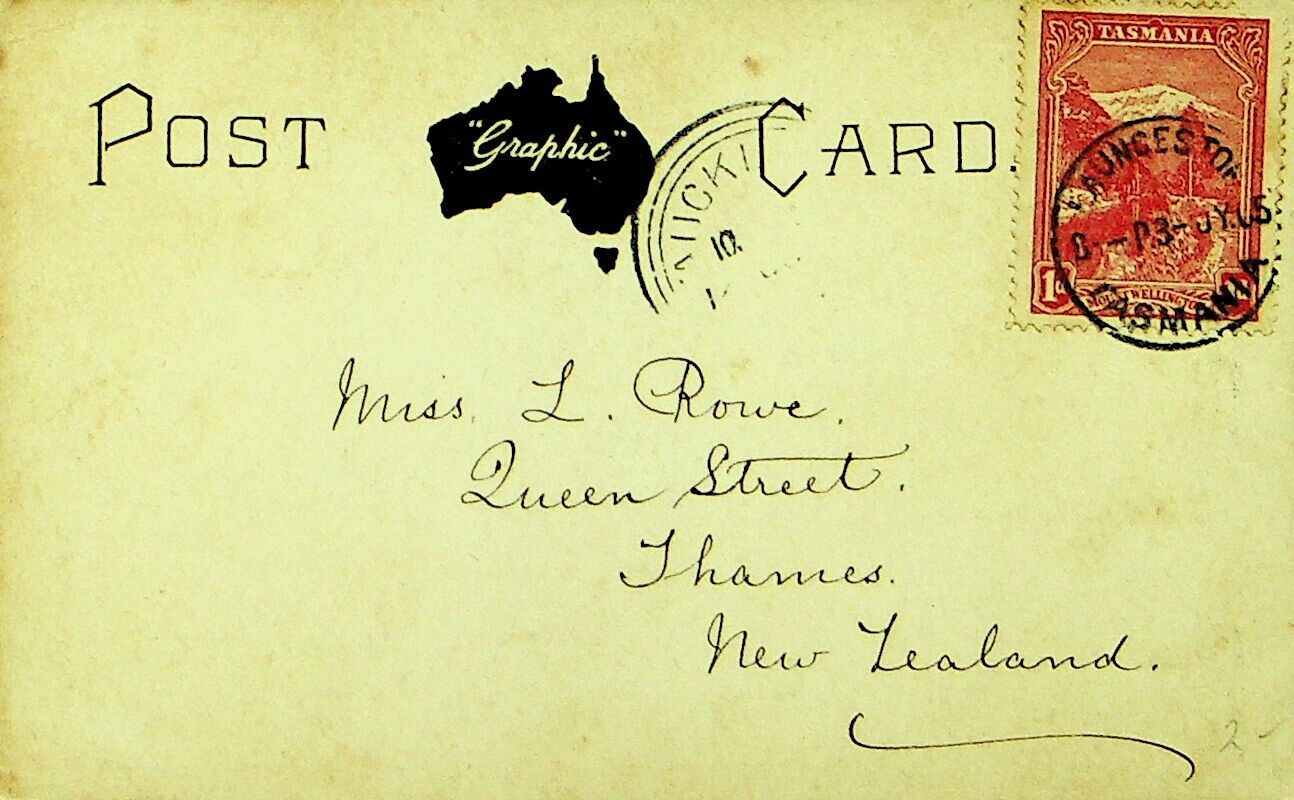 POST "Graphic" CARD.
TASMANIA
LAUNCESTON
3-JY.05
TASMANIA
1d
MOUNT WELLINGTON
10
Miss. L. Rowe.
Queen Street.
Thames.
New Zealand.
2-